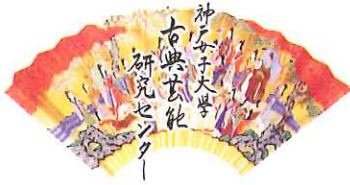 神戸女子大學
古典芸能
研究センター